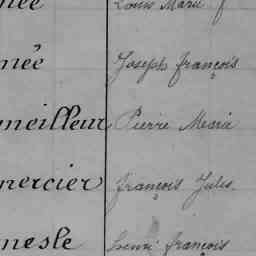 née Louis Marie f
née Joseph françois
meilleur Pierre Marie
mercier françois Jules
mesle henri françois